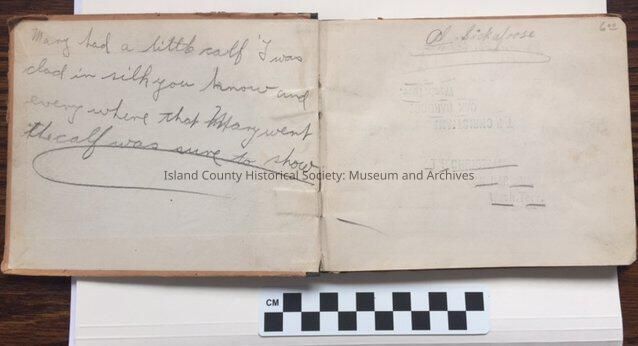 Mary had a little calf 'T was
clad in silk you know and
every where that Mary went
the calf was sure to show
6⁰⁰
Island County Historical Society: Museum and Archives
CM